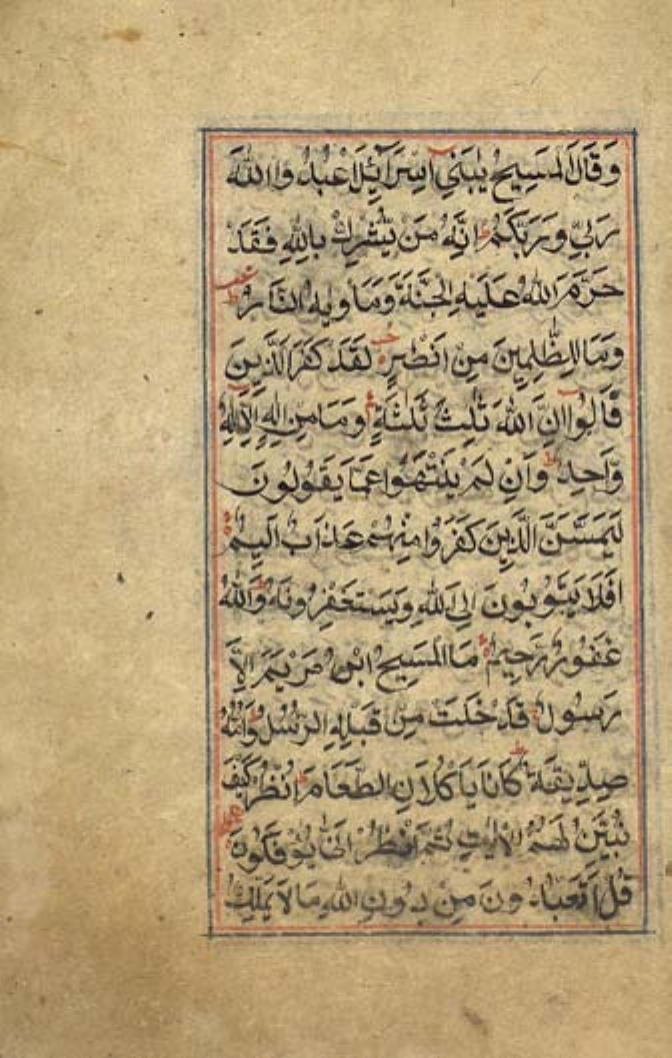 وَقَالَ الْمَسِيحُ يٰبَنِي اِسْرَآئِلَ اعْبُدُوا اللهَ
رَبِّي وَرَبَّكُمْ ط اِنَّهُ مَنْ يُشْرِكْ بِاللهِ فَقَدْ
حَرَّمَ اللهُ عَلَيْهِ الْجَنَّةَ وَمَاْوٰيهُ النَّارُ ط
وَمَا لِلظّٰلِمِينَ مِنْ اَنْصٰرٍ لَقَدْ كَفَرَ الَّذِينَ
قَالُوا اِنَّ اللهَ ثَالِثُ ثَلٰثَةٍ وَمَا مِنْ اِلٰهٍ اِلَّا اِلٰهٌ
وَاحِدٌ ط وَاِنْ لَمْ يَنْتَهُوا عَمَّا يَقُولُونَ
لَيَمَسَّنَّ الَّذِينَ كَفَرُوا مِنْهُمْ عَذَابٌ اَلِيمٌ
اَفَلَا يَتُوبُونَ اِلَى اللهِ وَيَسْتَغْفِرُونَهُ ط وَاللهُ
غَفُورٌ رَحِيمٌ مَا الْمَسِيحُ ابْنُ مَرْيَمَ اِلَّا
رَسُولٌ قَدْ خَلَتْ مِنْ قَبْلِهِ الرُّسُلُ ط وَاُمُّهُ
صِدِّيقَةٌ ط كَانَا يَاْكُلَانِ الطَّعَامَ ط اُنْظُرْ كَيْفَ
نُبَيِّنُ لَهُمُ الْاٰيٰتِ ثُمَّ انْظُرْ اَنّٰى يُؤْفَكُونَ
قُلْ اَتَعْبُدُونَ مِنْ دُونِ اللهِ مَا لَا يَمْلِكُ